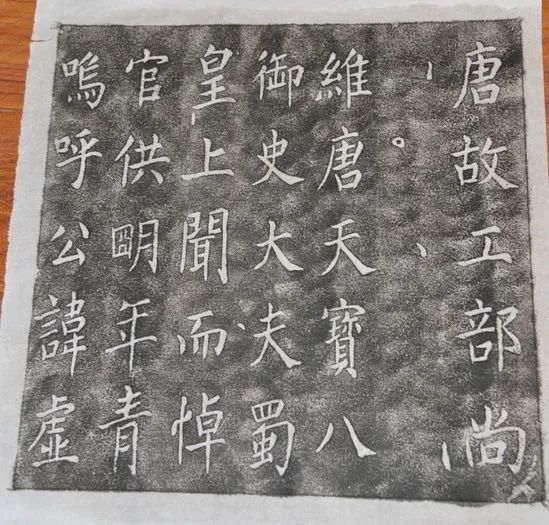 唐故工部尚
維唐天寶八
御史大夫蜀
皇上聞而悼
官供朙年青
嗚呼公諱虛